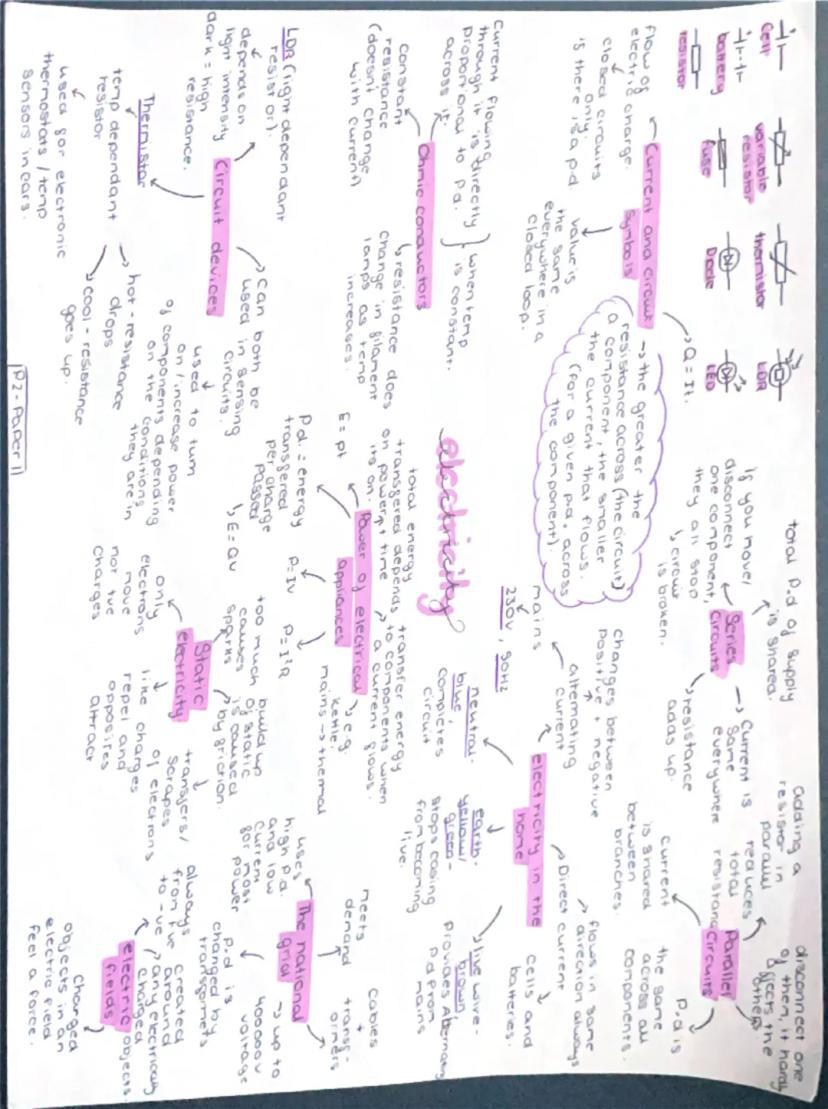 cell
battery
resistor
variable
resistor
fuse
thermistor
Diode
LDR
LED
Current and circuit
symbols
flow of
electric charge.
closed circuits
only.
is there is a p.d
value is
the same
everywhere in a
closed loop.
Q = It.
→ the greater the
resistance across (the circuit)
a component, the smaller
the current that flows.
(for a given p.d. across
the component).
Series
circuits
total p.d of supply
is shared.
if you move/
disconnect
one component,
they all stop
circuit
is broken.
→ Current is
same
everywhere
resistance
adds up.
Parallel
circuits
adding a
resistor in
parallel
reduces
total
resistance
disconnect one
of them, it hardly
affects the
others
current
is shared
between
branches.
p.d is
the same
across all
components.
Ohmic conductors
current flowing
through it is directly
proportional to p.d.
across it.
when temp
is constant.
constant
resistance
(doesn't change
with current)
resistance does
change in filament
lamps as temp
increases.
electricity
electricity in the
home
mains
230V, 50Hz
alternating
current
changes between
positive + negative
Direct current
flows in same
direction always
cells and
batteries.
neutral-
blue,
completes
circuit
earth-
yellow/
green-
stops casing
from becoming
live.
live wire-
brown,
Provides Alternating
p.d from
mains
Circuit devices
LDR (light dependant
resistor).
depends on
light intensity
dark = high
resistance.
Thermistor
temp dependant
resistor
used for electronic
thermostats / temp
sensors in cars.
→ hot - resistance
drops
cool - resistance
goes up.
can both be
used in sensing
circuits.
used to turn
on/increase power
of components depending
on the conditions
they are in
Power of electrical
appliances
total energy
transfered depends
on power + time
its on.
E = pt
p.d = energy
transfered
per charge
passed
E = QV
P = IV
P = I²R
transfer energy
to components when
a current flows.
e.g.
kettle.
mains → thermal
Static
electricity
only
electrons
move
not +ve
charges
too much
causes
sparks
build up
of static
is caused
by friction.
like charges
repel and
opposites
attract
transfers/
scrapes
of electrons
The national
grid
uses
high p.d.
and low
current
for most
power
meets
demand
cables
+
transf-
ormers
→ up to
400000V
voltage
p.d is
changed by
transformers
electric
fields
always
from +ve
to -ve
created
around
any electrically
charged
objects
charged
objects in an
electric field
feel a force.
P2 - Paper 1